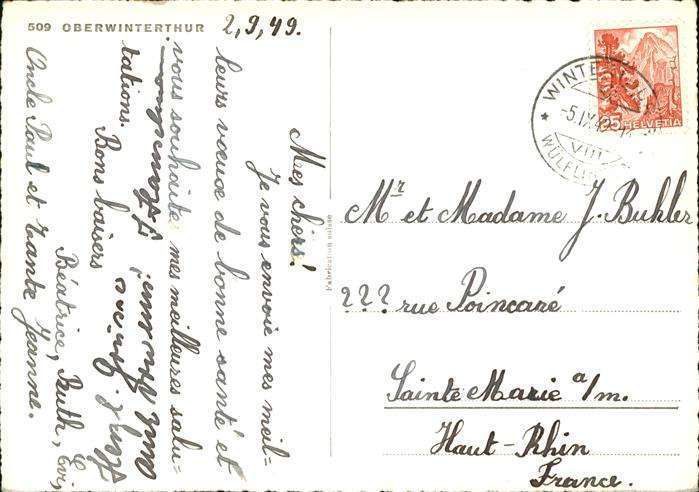 509 OBERWINTERTHUR
2,9,49.
Mes chiers!
Je vous envoie mes meil-
leurs vœux de bonne santé et
vous souhaite mes meilleures salu-
tations.
Bons baisers
Béatrice, Ruth, Evi,
Oncle Paul et tante Jeanne.
Fabrication suisse
WINTERTHUR
-5.IX.49
VIII
WÜLFLINGEN
25 HELVETIA
Mr et Madame J. Buhler
??? rue Poincaré
Sainte Marie a/m.
Haut-Rhin
France.